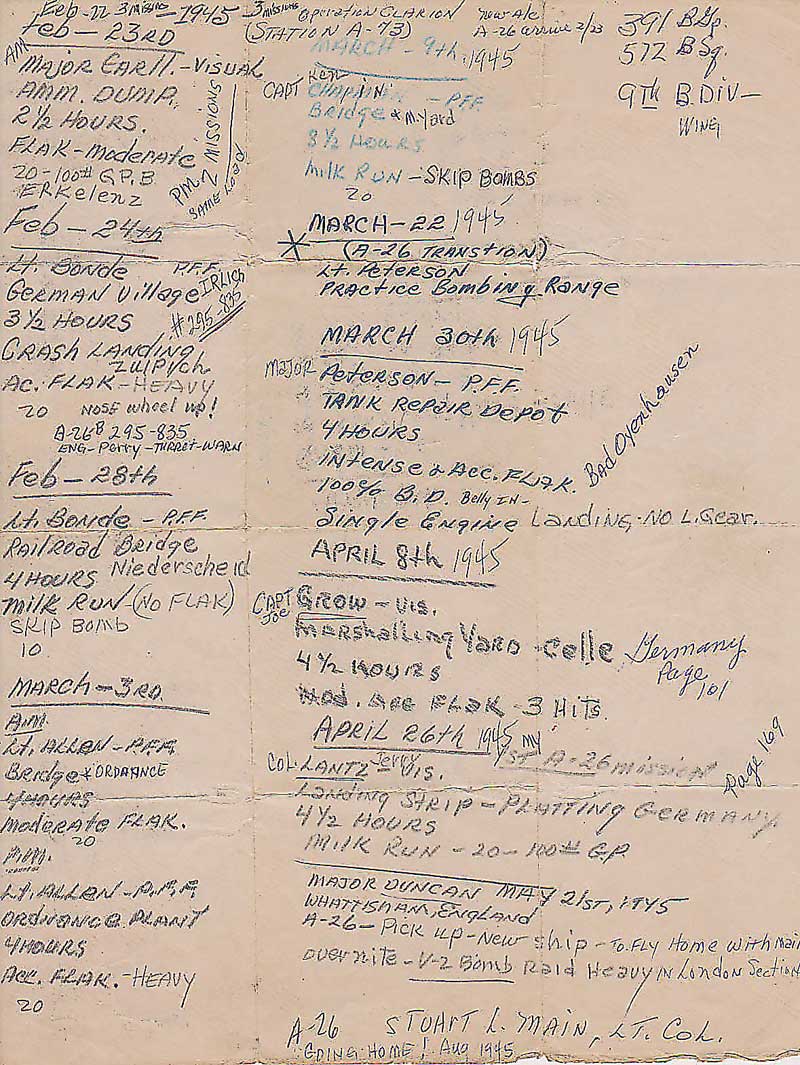 Feb-22 3 missions-1945
Feb - 23RD
AM
MAJOR EARLL.-VISUAL
AMM. DUMP.
2 1/2 HOURS.
FLAK-moderate
20-100# G.P.B.
ERKelenz
PM 2 MISSIONS
SAME
Feb - 24th
Lt. BONDE P.F.F.
GERMAN VILLAGE IRLich
3 1/2 HOURS #295-835
CRASH LANDING
ZULPich
AC. FLAK-HEAVY
20 NOSE wheel up!
A-26B 295-835
ENG-Perry-TURRET-WARN
Feb-28th
Lt. BONDE-P.F.F.
RAILROAD BRIDGE
4 HOURS Niederscheid
MILK RUN-(NO FLAK)
SKIP BOMB
10
MARCH-3RD.
A.M.
Lt. ALLEN-P.F.F.
BRIDGE & ORDANCE
4 HOURS
MODERATE FLAK.
20
P.M.
LT. ALLEN-P.F.F.
ORDNANCE PLANT
4 HOURS
ACC. FLAK.-HEAVY
20
3 missions OPERATION CLARION
(STATION A-73)
New A/c
A-26 arrive 2/23
MARCH-9th, 1945
CAPT Ken
CHAPIN - P.F.F.
BRIDGE & M.Yard
3 1/2 HOURS
MILK RUN-SKIP BOMBS
20
MARCH-22 1945
* (A-26 TRANSTION)
Lt. PETERSON
PRACTICE BOMBING RANGE
MARCH 30th 1945
MAJOR PETERSON-P.F.F.
TANK REPAIR DEPOT
4 HOURS
INTENSE & ACC. FLAK. BAD Oyenhausen
100% B.D. Belly IN-
SINGLE ENGINE LANDING-NO L.GEAR.
APRIL 8th 1945
CAPT Joe GROW-VIS.
MARSHALLING YARD-Celle Germany
4 1/2 HOURS Page 101
MOD. ACC FLAK-3 HITS.
APRIL 26th 1945 MY
1ST A-26 MISSION
COL. LANTZ Jerry-VIS.
Page 169
LANDING STRIP-PLATTING GERMANY.
4 1/2 HOURS
MILK RUN-20-100# G.P.
MAJOR DUNCAN MAY 21ST, 1945
WHATTISMAN, ENGLAND
A-26-PICK UP-NEW SHIP-TO FLY HOME WITH MAIN
OVERNITE-V-2 BOMB RAID HEAVY IN LONDON SECTION
A-26 STUART L. MAIN, LT. COL.
GOING HOME! AUG 1945
391 B.Gp.
572 B Sq.
9th B. DIV-
WING